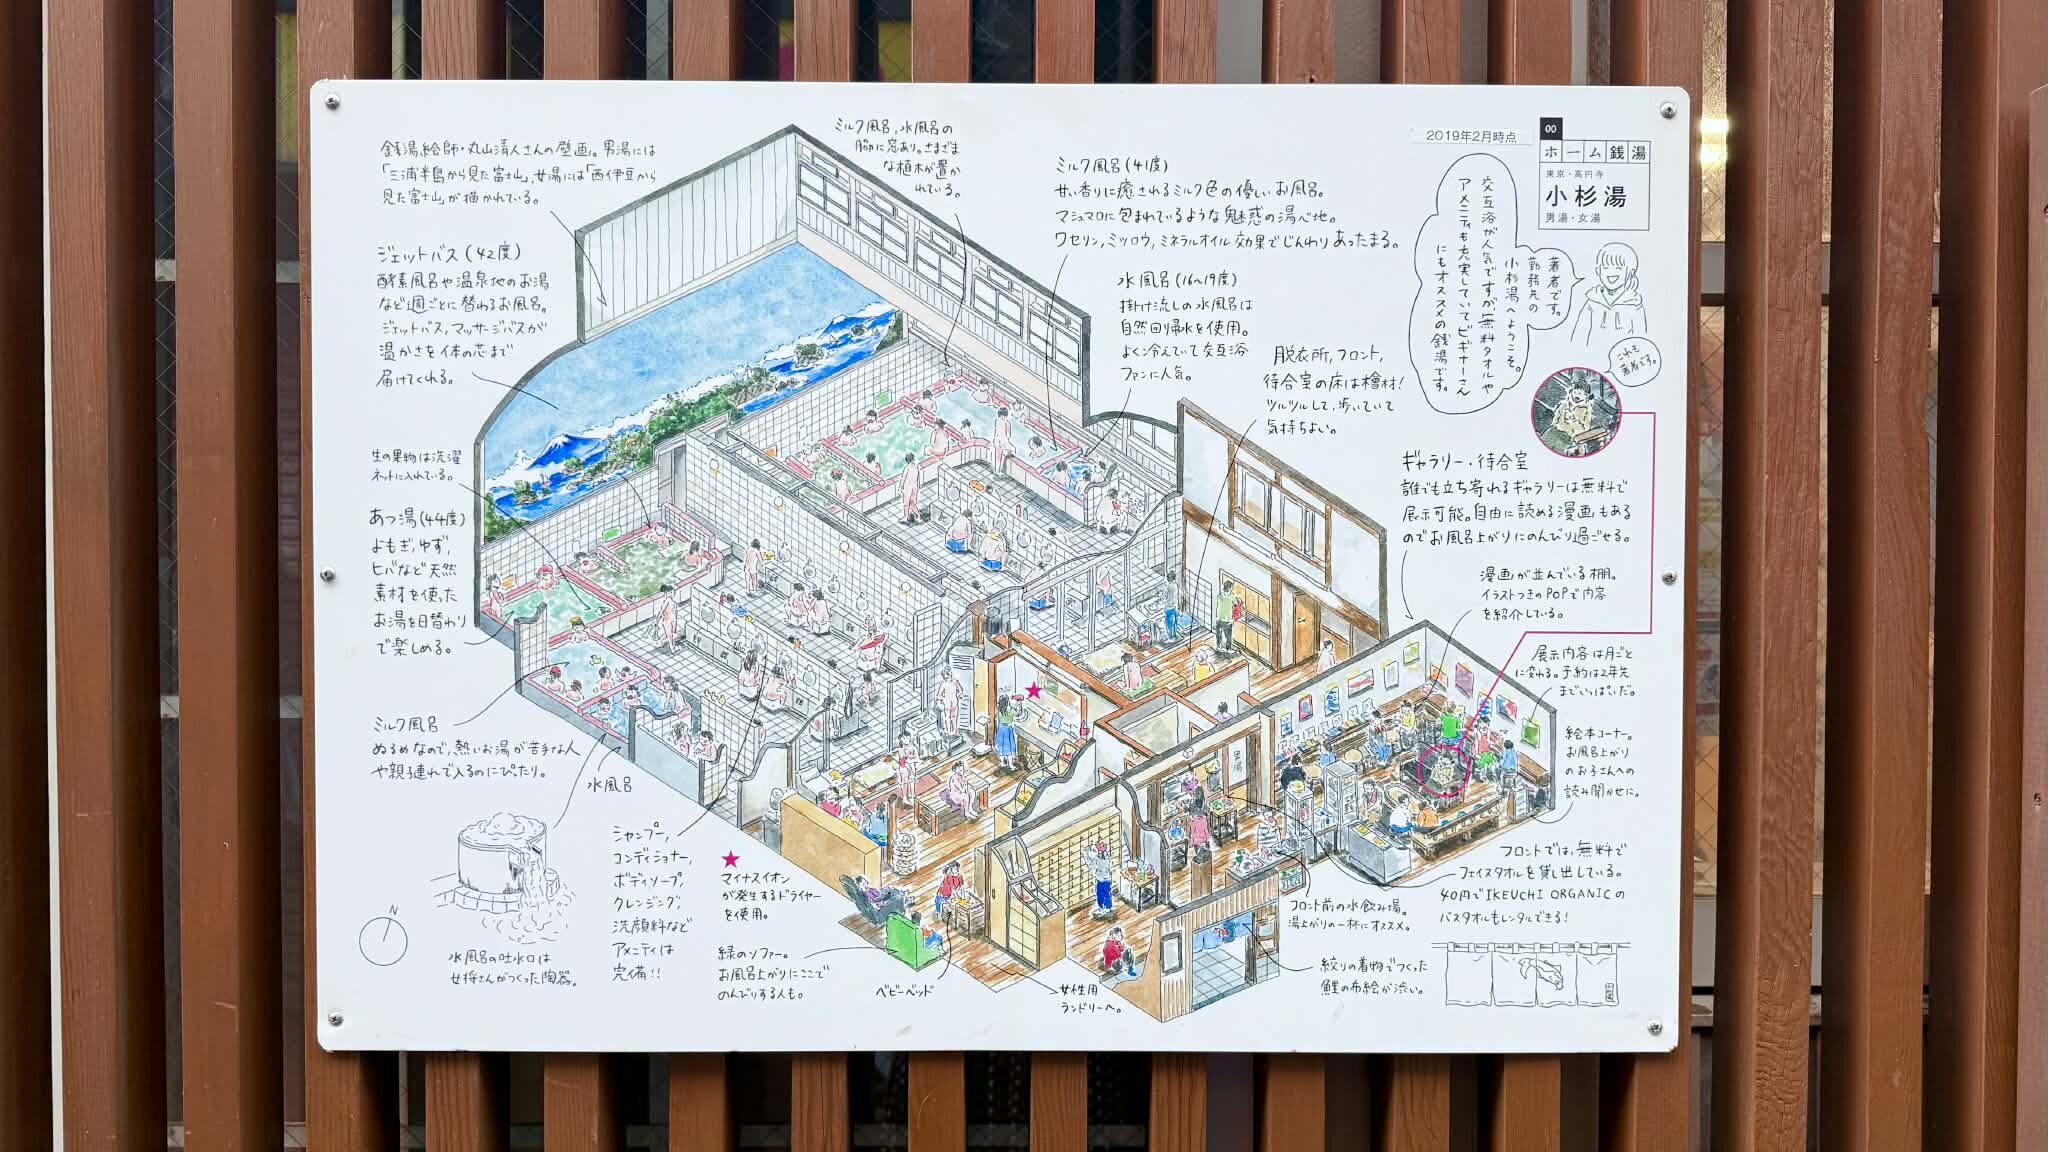 2019年2月時点
00
ホーム銭湯
東京・高円寺
小杉湯
男湯・女湯
著者です。
勤務先の
小杉湯へようこそ。
交互浴が人気ですが、無料タオルや
アメニティも充実していてビギナーさん
にもオススメの銭湯です。
これも
著者です。
銭湯絵師・丸山清人さんの壁画。男湯には
「三浦半島から見た富士山」、女湯には「西伊豆から
見た富士山」が描かれている。
ミルク風呂、水風呂の
脇に窓あり。さまざま
な植木が置か
れている。
ミルク風呂(41度)
甘い香りに癒されるミルク色の優しいお風呂。
マシュマロに包まれているような魅惑の湯心地。
ワセリン、ミツロウ、ミネラルオイル効果でじんわりあったまる。
水風呂(16〜19度)
掛け流しの水風呂は
自然回帰水を使用。
よく冷えていて交互浴
ファンに人気。
脱衣所、フロント、
待合室の床は檜材!
ツルツルして、歩いていて
気持ちよい。
ジェットバス(42度)
酵素風呂や温泉地のお湯
など週ごとに替わるお風呂。
ジェットバス、マッサージバスが
温かさを体の芯まで
届けてくれる。
生の果物は洗濯
ネットに入れている。
あつ湯(44度)
よもぎ、ゆず、
ヒバなど天然
素材を使った
お湯を日替わり
で楽しめる。
ミルク風呂
ぬるめなので、熱いお湯が苦手な人
や親子連れで入るのにぴったり。
水風呂
水風呂の吐水口は
女将さんがつくった陶器。
N
シャンプー、
コンディショナー、
ボディソープ、
クレンジング、
洗顔料など
アメニティは
完備!!
★
マイナスイオン
が発生するドライヤー
を使用。
緑のソファー。
お風呂上がりにここで
のんびりする人も。
ベビーベッド
女性用
ランドリーへ。
ギャラリー・待合室
誰でも立ち寄れるギャラリーは無料で
展示可能。自由に読める漫画もある
のでお風呂上がりにのんびり過ごせる。
漫画が並んでいる棚。
イラストつきのPOPで内容
を紹介している。
展示内容は月ごと
に変わる。予約は2年先
までいっぱいだ。
絵本コーナー。
お風呂上がり
のお子さんへの
読み聞かせに。
フロントでは、無料で
フェイスタオルを貸し出している。
40円でIKEUCHI ORGANICの
バスタオルもレンタルできる!
フロント前の水飲み場。
湯上がりの一杯にオススメ。
絞りの着物でつくった
鯉の布絵が渋い。
男湯